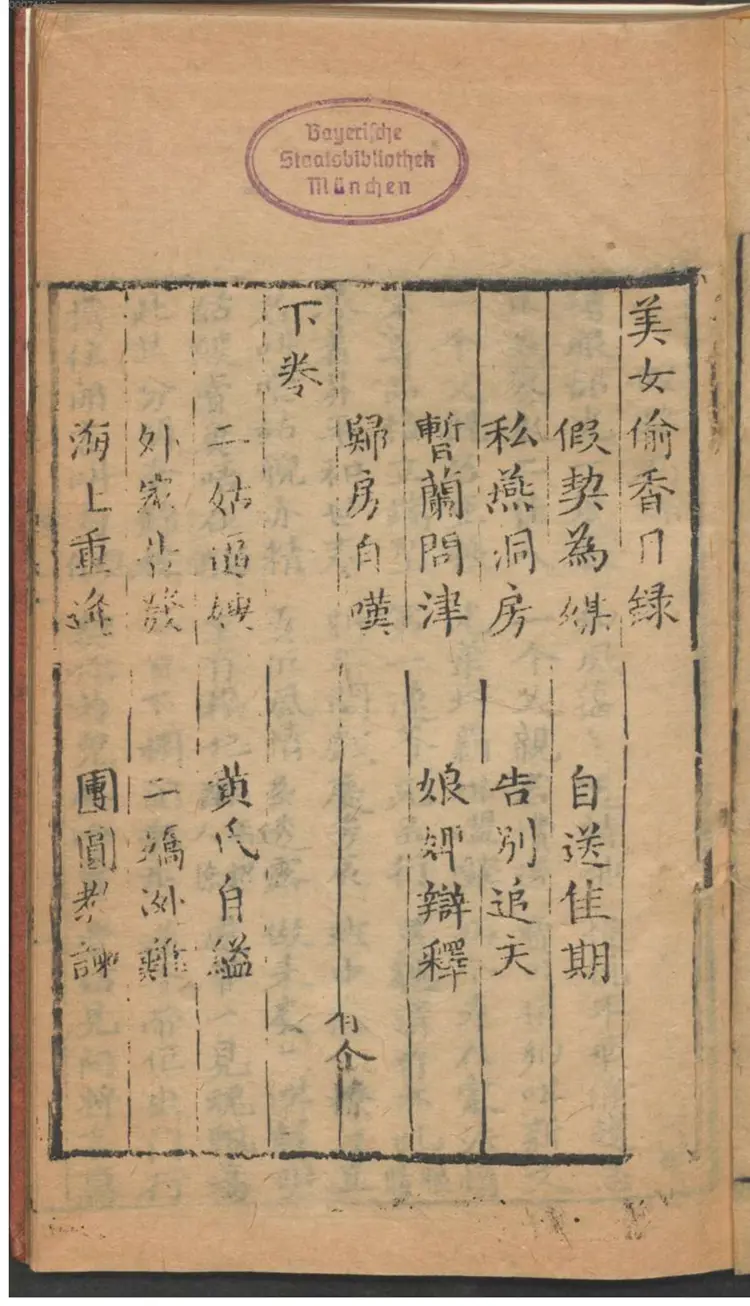 Bayerische
Staatsbibliothek
München
美女偷香目録
假契為媒 自送佳期
私燕洞房 告別追夫
暫蘭問津 娘婢辯釋
歸房自嘆
下卷
二姑逼嫂 黄氏自縊
外家 二 難
海上重逢 團圓 諫